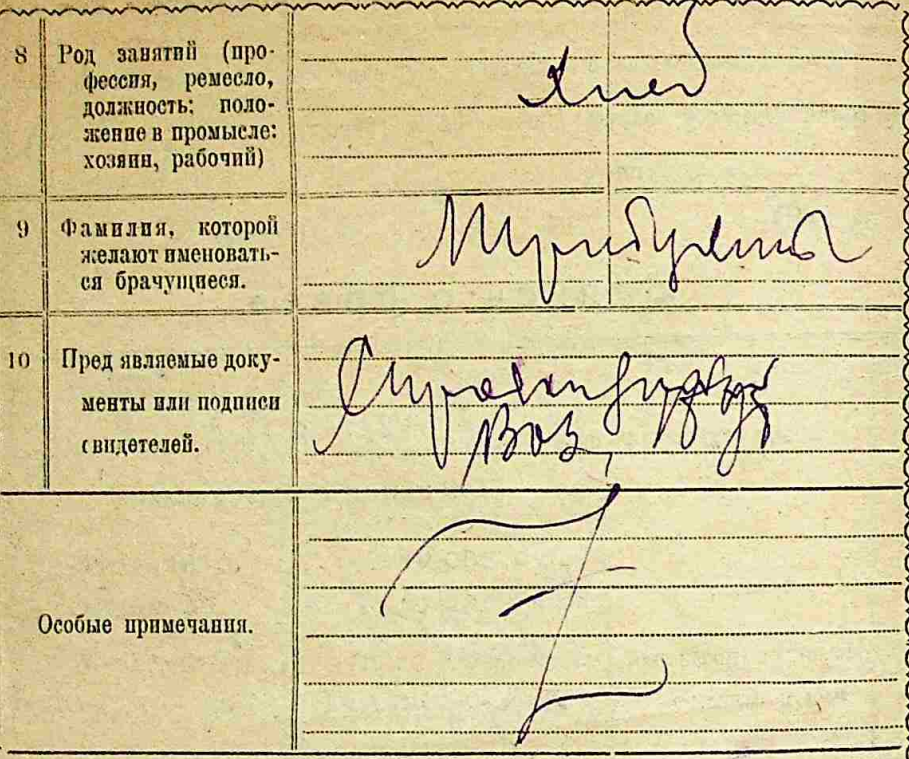 8 Род занятий (про-
фессия, ремесло,
должность: поло-
жение в промысле:
хозяин, рабочий)
Хлеб
9 Фамилия, которой
желают именовать-
ся брачущиеся.
10 Пред являемые доку-
менты или подписи
свидетелей.
Особые примечания.